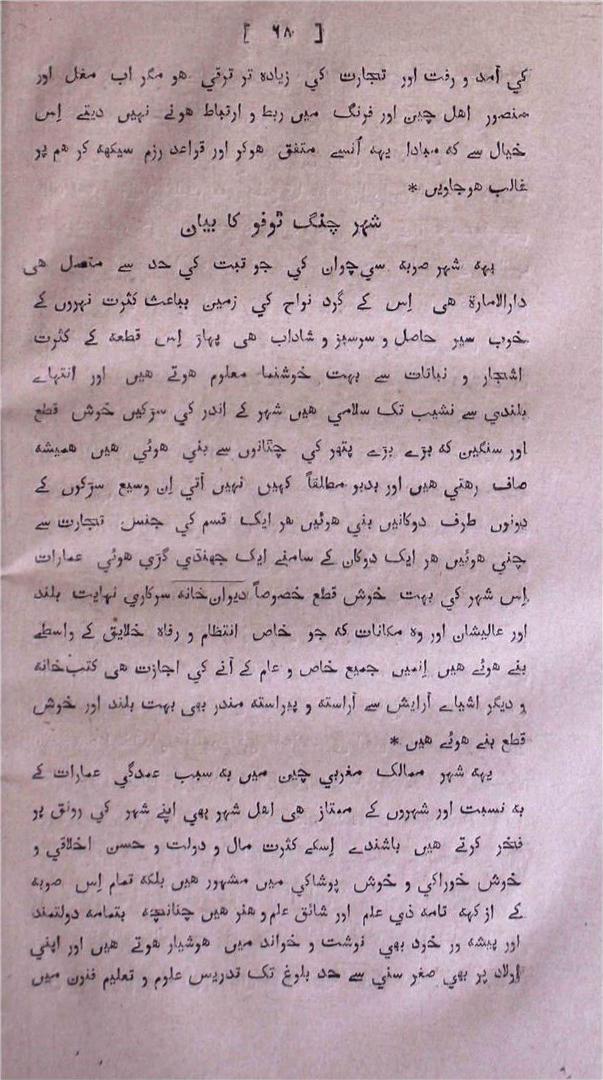 [ ٦٨٠ ]
کي آمد و رفت اور تجارت کي زيادہ تر ترقي هو مگر اب مغل اور
منصور اهل چين اور فرنگ ميں ربط و ارتباط هونے نہيں ديتے اِس
خيال سے کہ مبادا يہہ اُنسے متفق هوکر اور قواعد رزم سيکهہ کر هم پر
غالب هوجاويں *
شہر چنگ ٿوفو کا بيان
يہہ شہر صوبہ سي‌چوان کي جو تبت کي حد سے متصل هي
دارالامارة هي اِس کے گرد نواح کي زمين بباعث کثرت نہروں کے
خوب سير حاصل و سرسبز و شاداب هي پہاڑ اِس قطعہ کے کثرت
اشجار و نباتات سے بہت خوشنما معلوم هوتے هيں اور انتہاے
بلندي سے نشيب تک سلامي هيں شہر کے اندر کي سڑکيں خوش قطع
اور سنگين کہ بڑے بڑے پتهر کي چٿانوں سے بني هوئي هيں هميشہ
صاف رهتي هيں اور بدبو مطلقاً کہيں نہيں آتي اِن وسيع سڑکوں کے
دونوں طرف دوکانيں بني هوئيں هر ايک قسم کي جنس تجارت سے
چني هوئيں هر ايک دوکان کے سامنے ايک جهنڈي گڑي هوئي عمارات
اِس شہر کي بہت خوش قطع خصوصاً ديوان خانہ سرکاري نہايت بلند
اور عاليشان اور وہ مکانات کہ جو خاص انتظام و رفاہ خلايق کے واسطے
بنے هوئے هيں اِنميں جميع خاص و عام کے آنے کي اجازت هي کتب خانہ
و ديگر اشياے آرايش سے آراستہ و پيراستہ مندر بهي بہت بلند اور خوش
قطع بنے هوئے هيں *
يہہ شہر ممالک مغربي چين ميں بہ سبب عمدگي عمارات کے
بہ نسبت اور شہروں کے ممتاز هي اهل شہر بهي اپنے شہر کي رونق پر
فخر کرتے هيں باشندے اِسکے کثرت مال و دولت و حسن اخلاقي و
خوش خوراکي و خوش پوشاکي ميں مشہور هيں بلکہ تمام اِس صوبہ
کے از کہہ تامہ ذي علم اور شائق علم و هنر هيں چنانچہ بتمامہ دولتمند
اور پيشہ ور خرد بهي نوشت و خواند ميں هوشيار هوتے هيں اور اپني
اولاد پر بهي صغر سني سے حد بلوغ تک تدريس علوم و تعليم فنون ميں